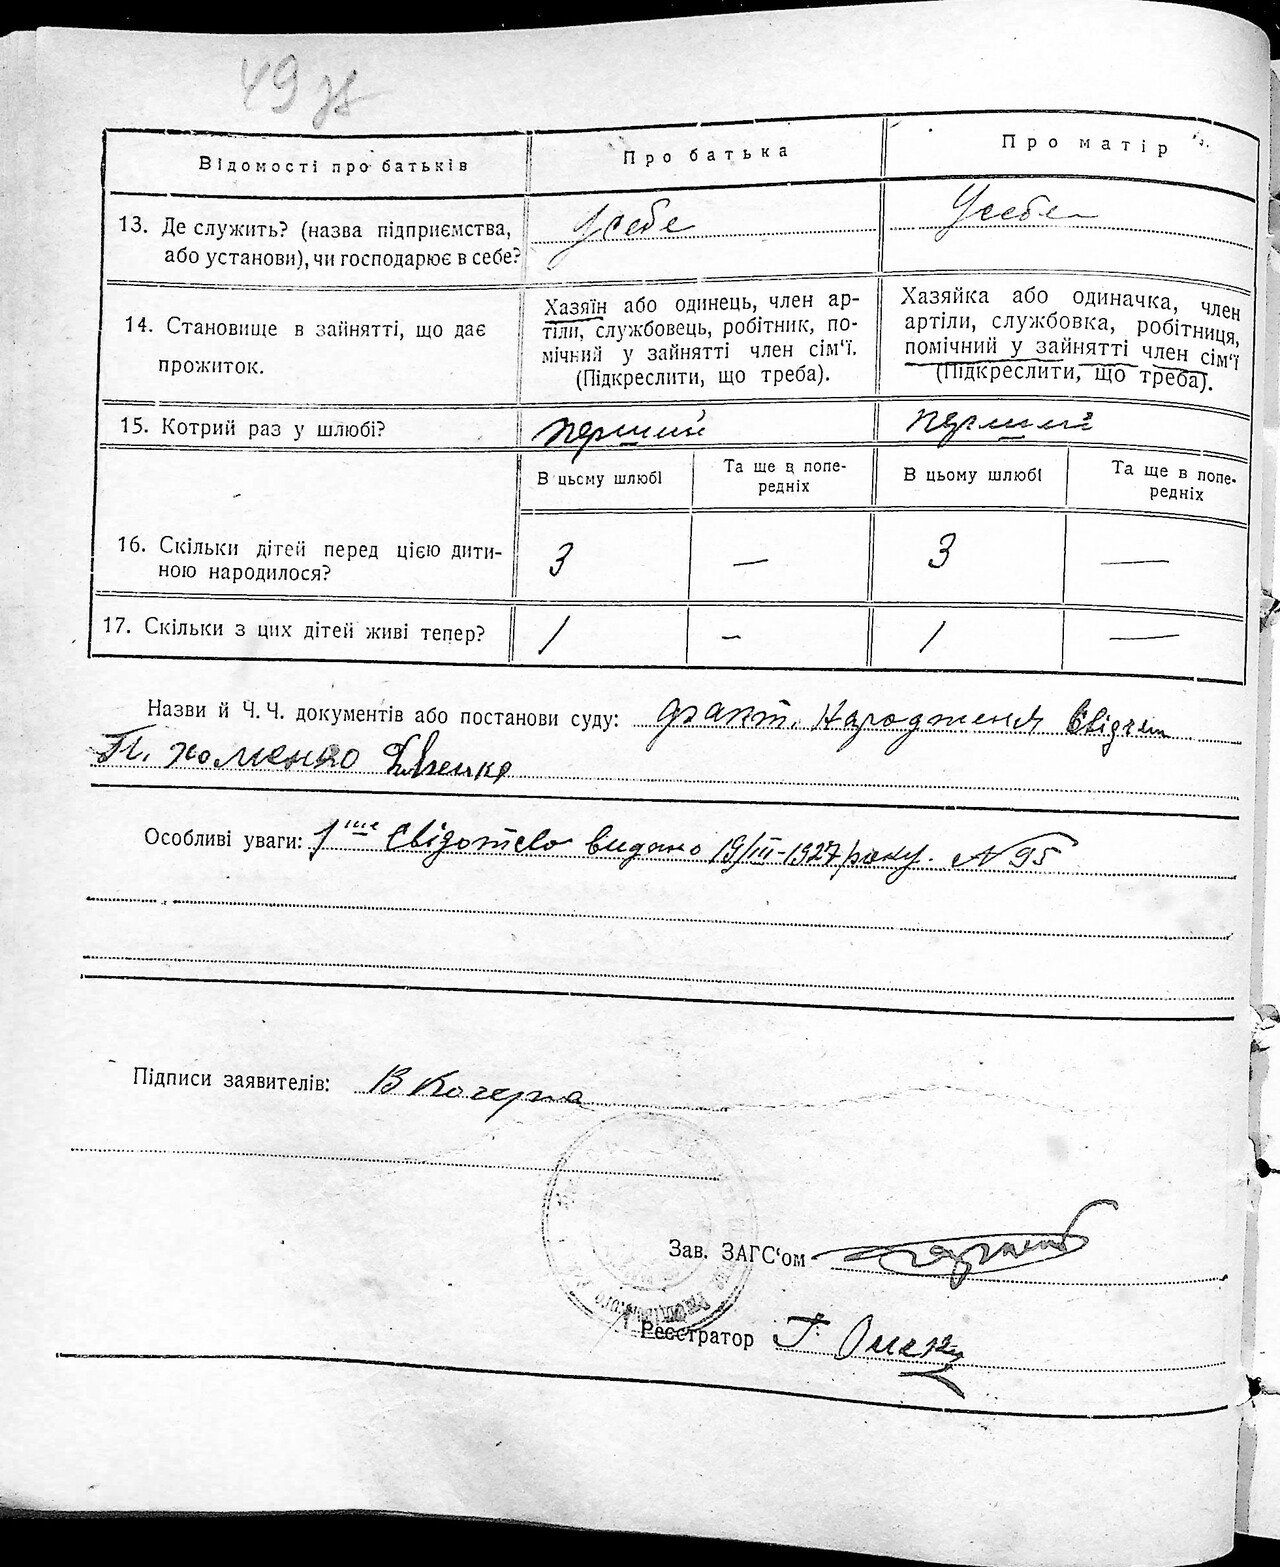 49 зв
Відомості про батьків
Про батька
Про матір
13. Де служить? (назва підприємства,
або установи), чи господарює в себе?
Усебе
Усебе
14. Становище в зайнятті, що дає
прожиток.
Хазяїн або одинець, член ар-
тіли, службовець, робітник, по-
мічний у зайнятті член сім'ї.
(Підкреслити, що треба).
Хазяйка або одиначка, член
артіли, службовка, робітниця,
помічний у зайнятті член сім'ї
(Підкреслити, що треба).
15. Котрий раз у шлюбі?
перший
перший
В цьому шлюбі
Та ще в попе-
редніх
В цьому шлюбі
Та ще в попе-
редніх
16. Скільки дітей перед цією дити-
ною народилося?
3
—
3
—
17. Скільки з цих дітей живі тепер?
1
—
1
—
Назви й Ч. Ч. документів або постанови суду: факт. Народження Свідчат
Хоменко
Особливі уваги: 1ше Свідотство видано 19/III-1927 року. N 95
Підписи заявителів: В Кочерга
Зав. ЗАГС'ом
Реєстратор Г.